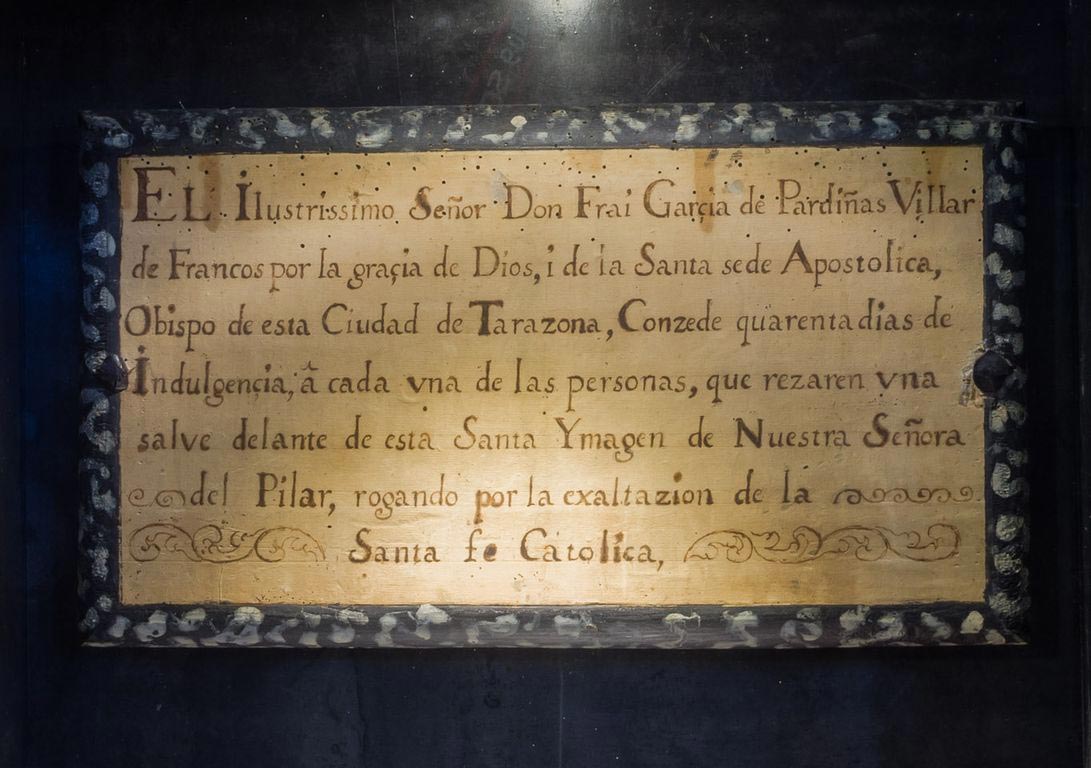 EL Ilustrissimo Señor Don Frai Garçia de Pardiñas Villar
de Francos por la graçia de Dios, i de la Santa sede Apostolica,
Obispo de esta Ciudad de Tarazona, Conzede quarenta dias de
Indulgençia, â cada vna de las personas, que rezaren vna
salve delante de esta Santa Ymagen de Nuestra Señora
del Pilar, rogando por la exaltazion de la
Santa fe Catolica,